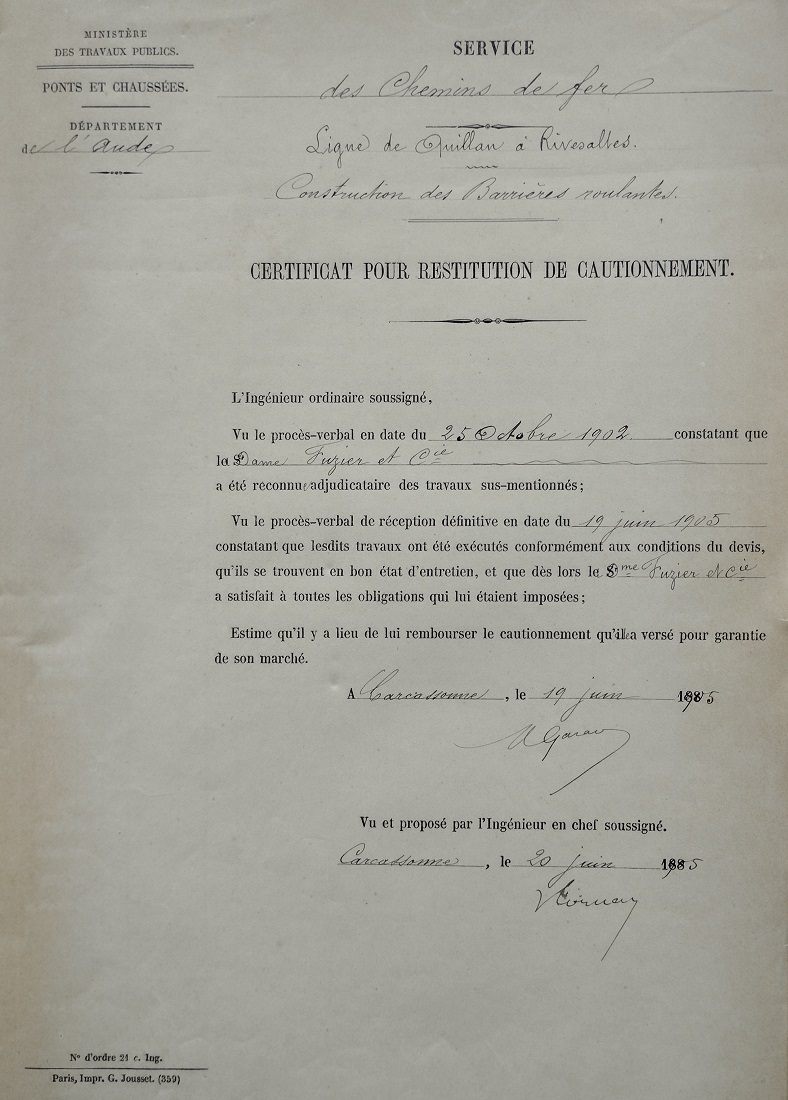 MINISTÈRE
DES TRAVAUX PUBLICS.
PONTS ET CHAUSSÉES.
DÉPARTEMENT
de l'Aude
SERVICE
des Chemins de fer
Ligne de Quillan à Rivesaltes.
Construction des Barrières roulantes.
CERTIFICAT POUR RESTITUTION DE CAUTIONNEMENT.
L'Ingénieur ordinaire soussigné,
Vu le procès-verbal en date du 25 Octobre 1902 constatant que
la Dame Fuzier et Cie
a été reconnue adjudicataire des travaux sus-mentionnés;
Vu le procès-verbal de réception définitive en date du 19 juin 1905
constatant que lesdits travaux ont été exécutés conformément aux conditions du devis,
qu'ils se trouvent en bon état d'entretien, et que dès lors le Dme Fuzier et Cie
a satisfait à toutes les obligations qui lui étaient imposées;
Estime qu'il y a lieu de lui rembourser le cautionnement qu'elle a versé pour garantie
de son marché.
A Carcassonne, le 19 juin 1905
Vu et proposé par l'Ingénieur en chef soussigné.
Carcassonne, le 20 juin 1905
N° d'ordre 21 c. Ing.
Paris, Impr. G. Jousset. (359)